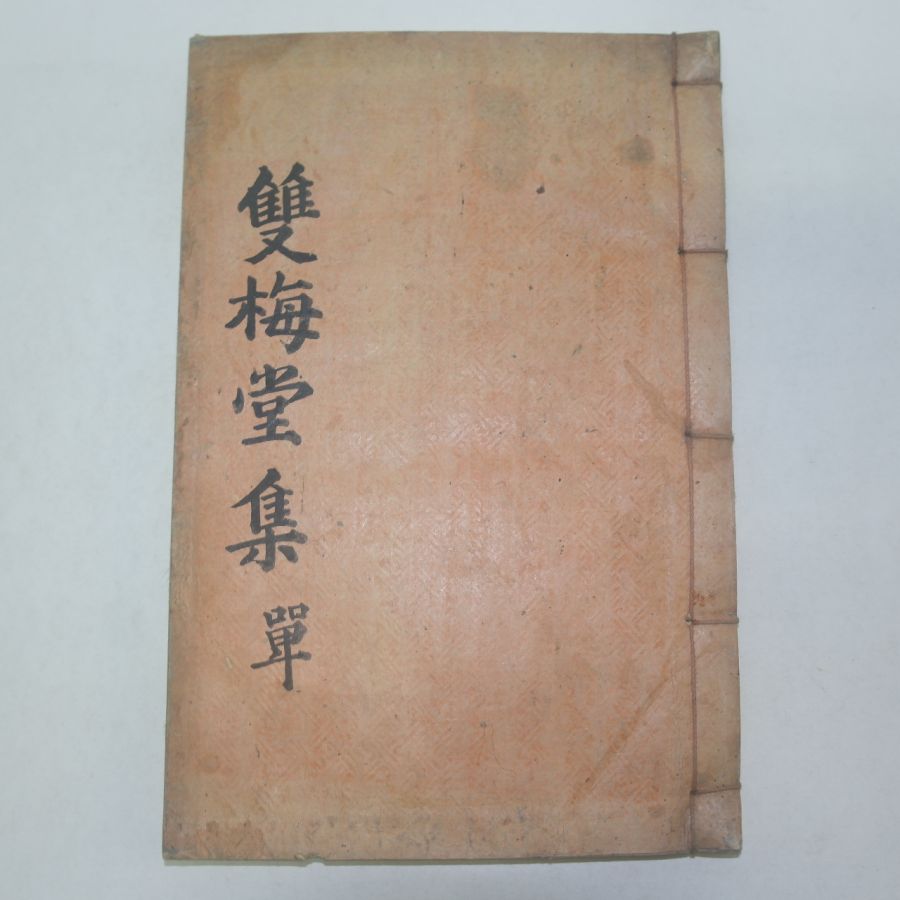 雙梅堂集 單